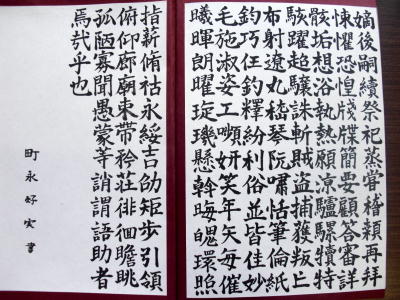 嫡後嗣續祭祀蒸嘗稽顙再拜
悚懼恐惶牋牒簡要顧答審詳
骸垢想浴執熱願涼驢騾犢特
駭躍超驤誅斬賊盜捕獲叛亡
布射遼丸嵇琴阮嘯恬筆倫紙
鈞巧任釣釋紛利俗並皆佳妙
毛施淑姿工嚬妍笑年矢每催
曦暉朗曜琁璣懸斡晦魄環照
指薪脩祜永綏吉劭矩步引領
俯仰廊廟束帶矜莊徘徊瞻眺
孤陋寡聞愚蒙等誚謂語助者
焉哉乎也
町永好実書